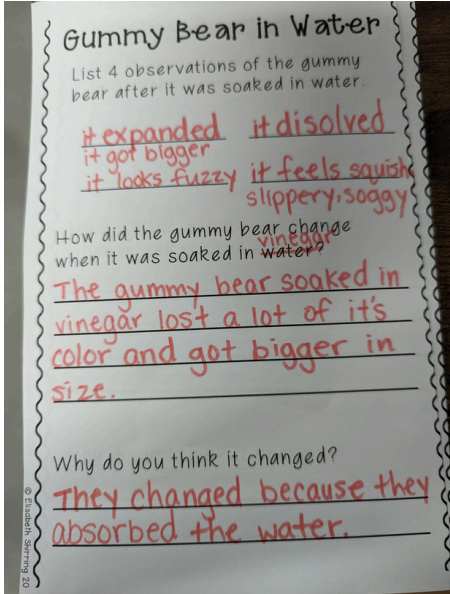 Gummy Bear in Water
List 4 observations of the gummy
bear after it was soaked in water.
it expanded it disolved
it got bigger
it looks fuzzy it feels squish
slippery, soggy
How did the gummy bear change
vinegar
when it was soaked in water?
The gummy bear soaked in
vinegar lost a lot of it's
color and got bigger in
size.
Why do you think it changed?
They changed because they
absorbed the water.
© Elisabeth 20